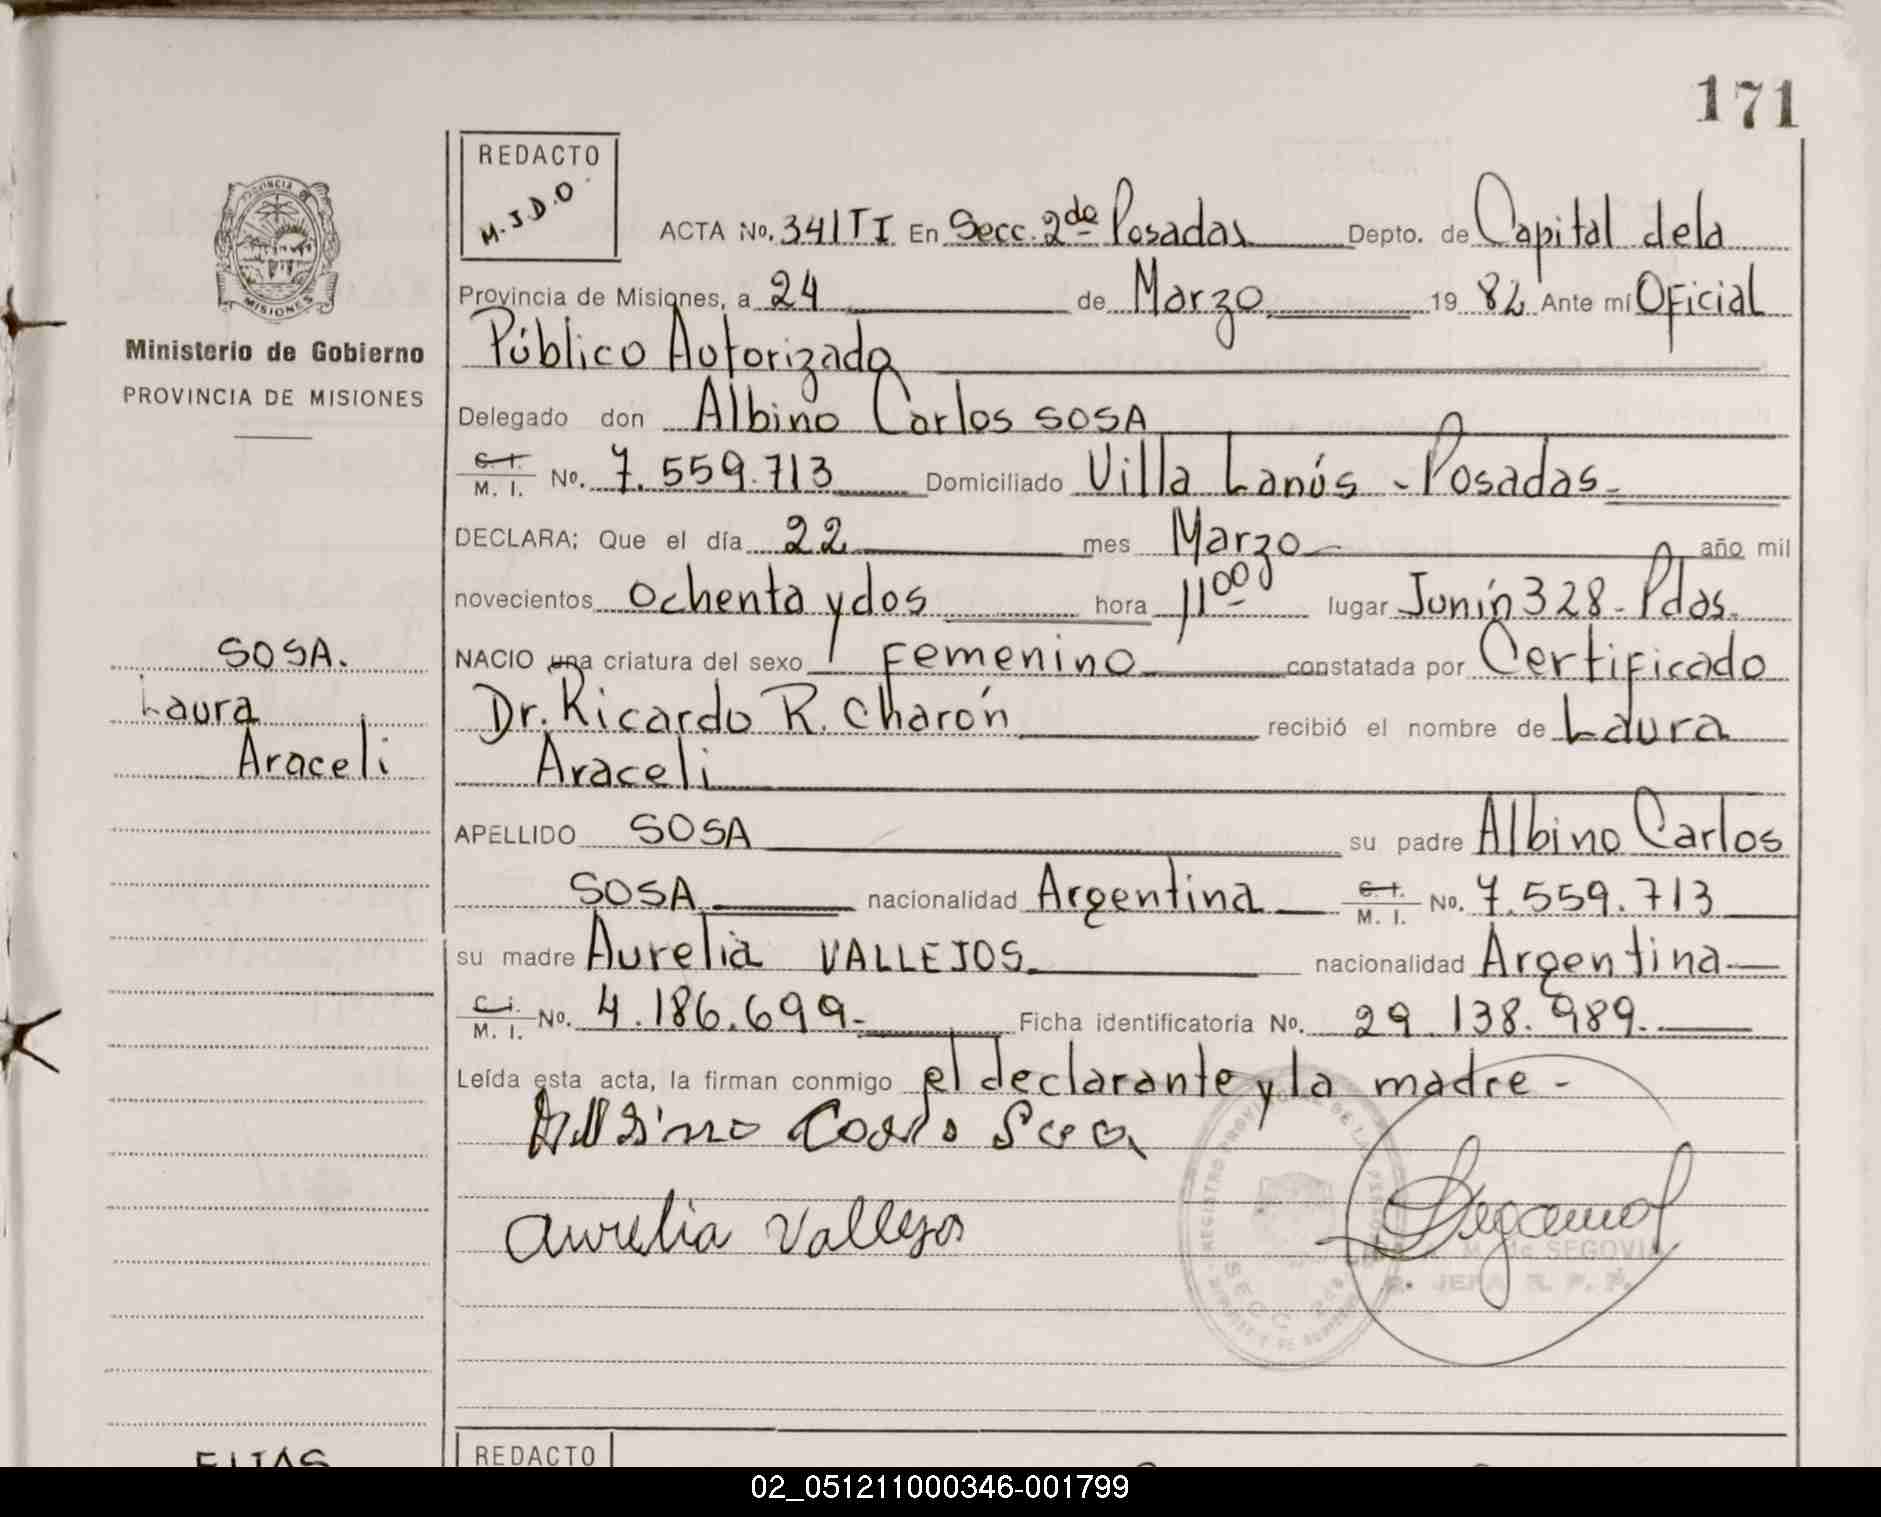 171
REDACTO
M.J.D.O.
ACTA No. 341 TI En Secc. 2da Posadas Depto. de Capital dela
Provincia de Misiones, a 24 de Marzo 1982 Ante mí Oficial
Público Autorizado
PROVINCIA DE
MISIONES
Ministerio de Gobierno
PROVINCIA DE MISIONES
Delegado don Albino Carlos SOSA
C. I.
M. I. No. 7.559.713 Domiciliado Villa Lanús - Posadas
DECLARA; Que el día 22 mes Marzo año mil
novecientos ochenta y dos hora 11 00 lugar Junín 328 - Pdas.
SOSA.
Laura
Araceli
NACIO una criatura del sexo Femenino constatada por Certificado
Dr. Ricardo R. Charón recibió el nombre de Laura
Araceli
APELLIDO SOSA su padre Albino Carlos
SOSA nacionalidad Argentina C. I.
M. I. No. 7.559.713
su madre Aurelia VALLEJOS nacionalidad Argentina
C. I.
M. I. No. 4.186.699 Ficha identificatoria No. 29.138.989.
Leída esta acta, la firman conmigo el declarante y la madre -
Albino Carlos Sosa
Aurelia Vallejos
SEGOVIA
JEFA R. P. P.
REDACTO
ELIAS
02_051211000346-001799